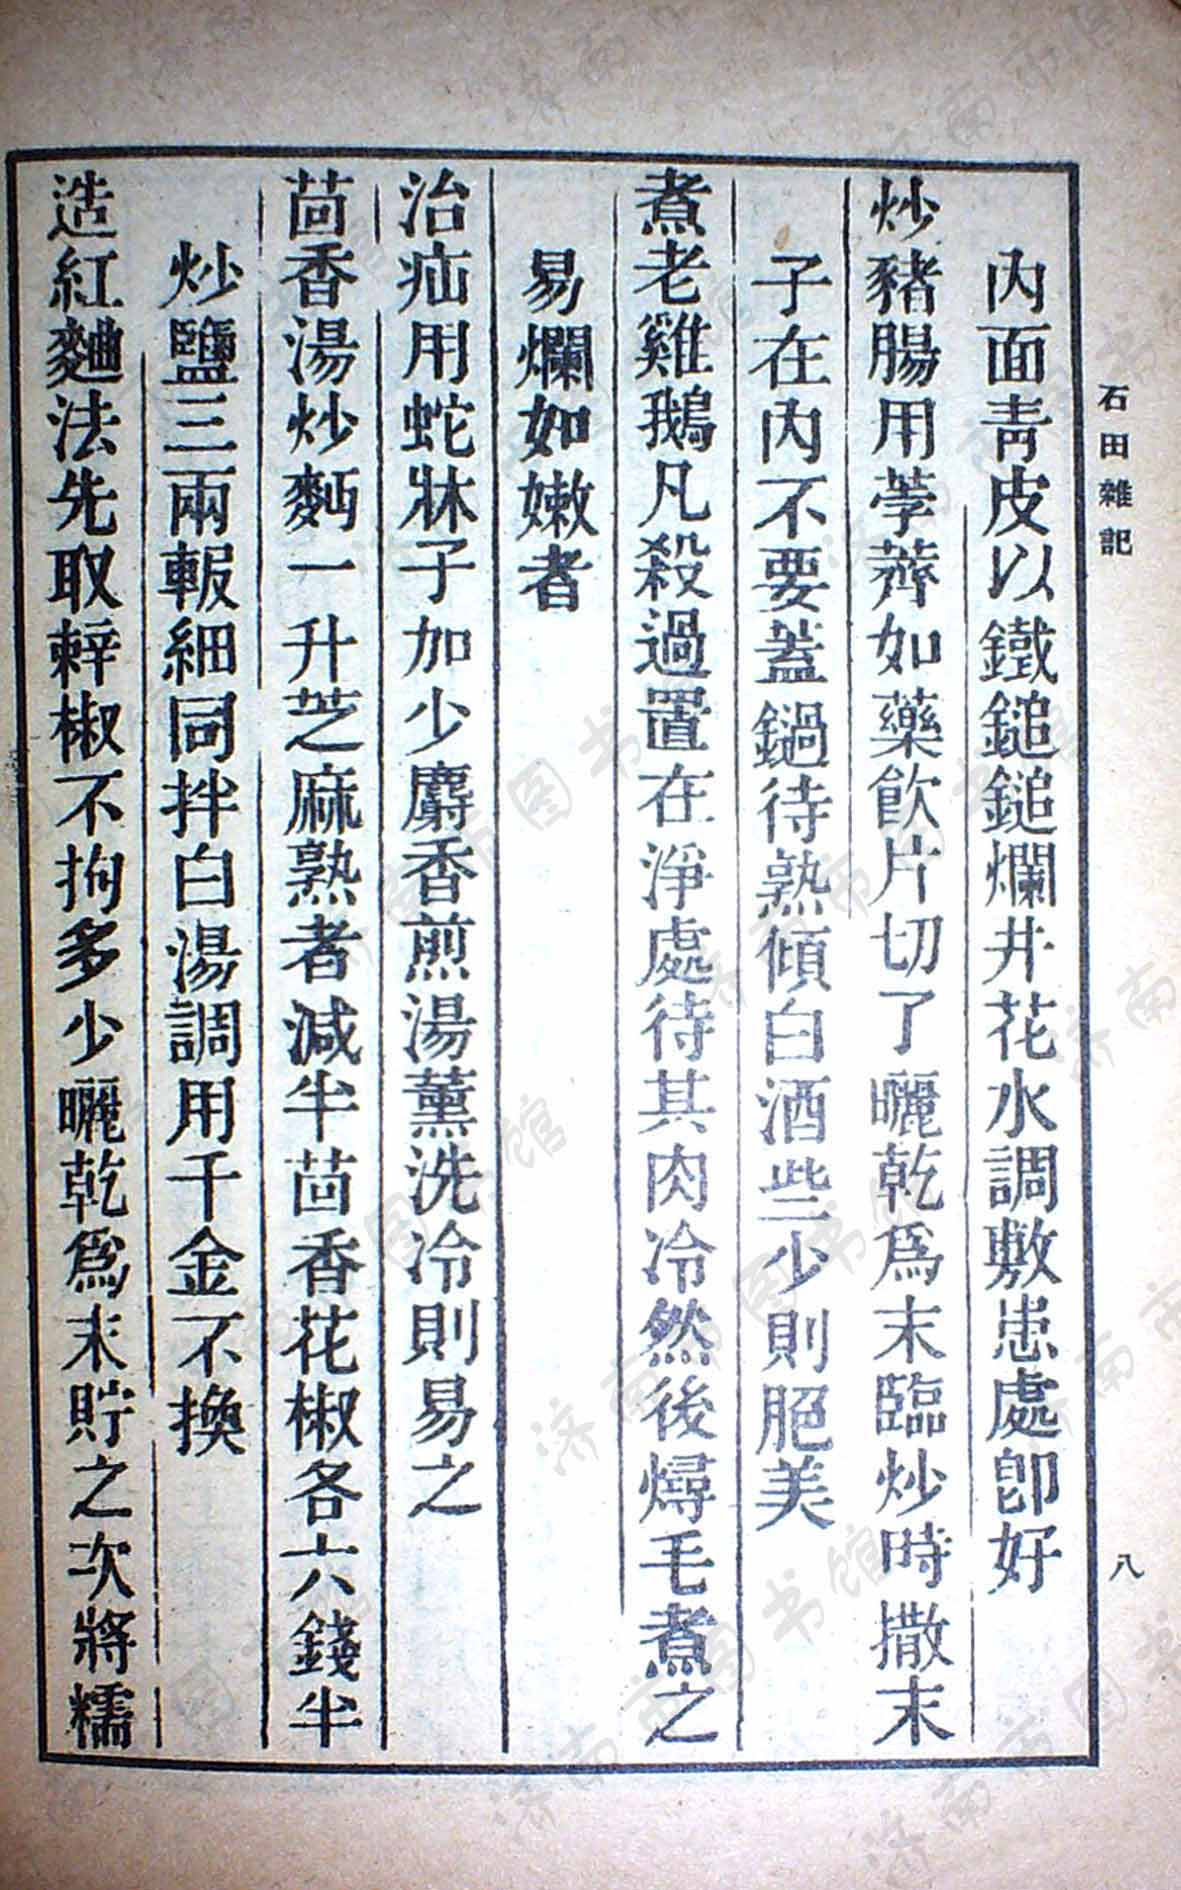 石田雜記
八
內面青皮以鐵鎚鎚爛井花水調敷患處卽好
炒豬腸用荸薺如藥飮片切了曬乾爲末臨炒時撒末
子在內不要蓋鍋待熟傾白酒些少則肥美
煮老雞鵝凡殺過置在淨處待其肉冷然後燖毛煮之
易爛如嫩者
治疝用蛇牀子加少麝香煎湯薰洗冷則易之
茴香湯炒麪一升芝麻熟者減半茴香花椒各六錢半
炒鹽三兩報細同拌白湯調用千金不換
造紅麯法先取辣椒不拘多少曬乾爲末貯之次將糯
济南市图书馆